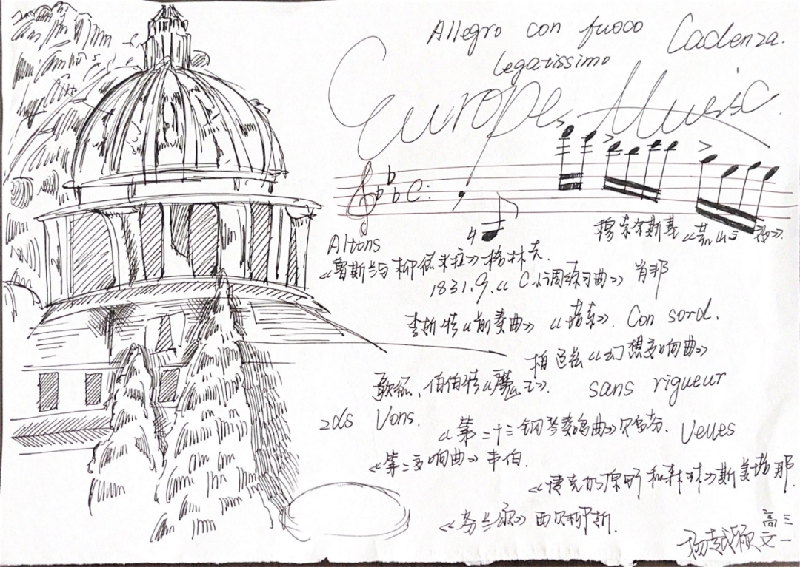 Allegro con fuoco Cadenza.
legatissimo
Europe Music
穆索尔斯基《荒山之夜》.
Altons
《鲁斯兰与柳德米拉》格林卡.
1831.9.《C小调练习曲》肖邦
李斯特《前奏曲》《塔索》. Con sord.
柏辽兹《幻想交响曲》
歌纪、伯伯特《魔王》. sans rigueur
2ds Vons.
《第二十三钢琴奏鸣曲》贝多芬. Velles
《第二交响曲》韦伯
《捷克的原野和森林》斯美塔那.
《芬兰颂》西贝柳斯.
高三
杨越颖 文一